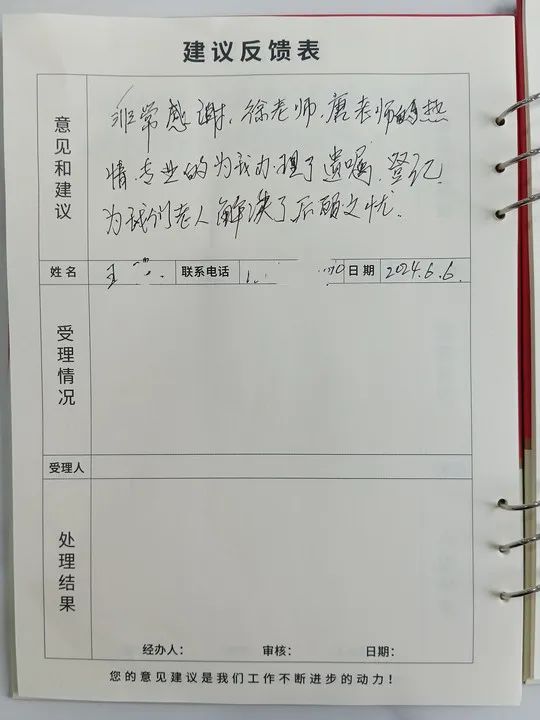 建议反馈表
意见和建议
非常感谢，徐老师，唐老师的热
情、专业的为我办理了遗嘱、登记，
为我们老人解决了后顾之忧.
姓名 王 联系电话 日期 2024.6.6.
受理情况
受理人
处理结果
经办人： 审核： 日期：
您的意见建议是我们工作不断进步的动力！